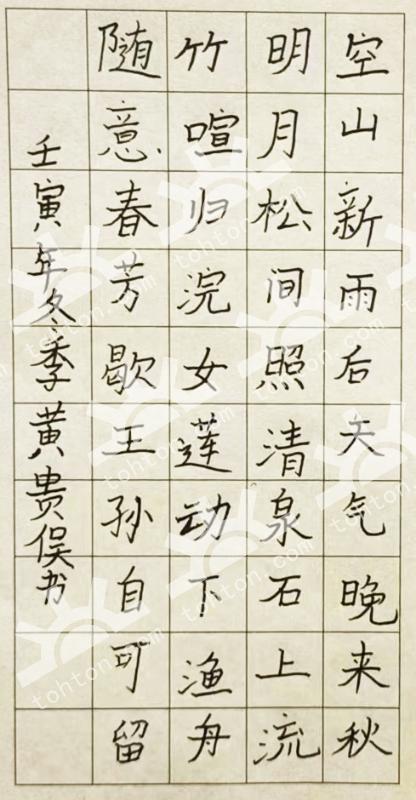 空山新雨后天气晚来秋
明月松间照清泉石上流
竹喧归浣女莲动下渔舟
随意春芳歇王孙自可留
壬寅年冬季黄贵俣书
tohton.com